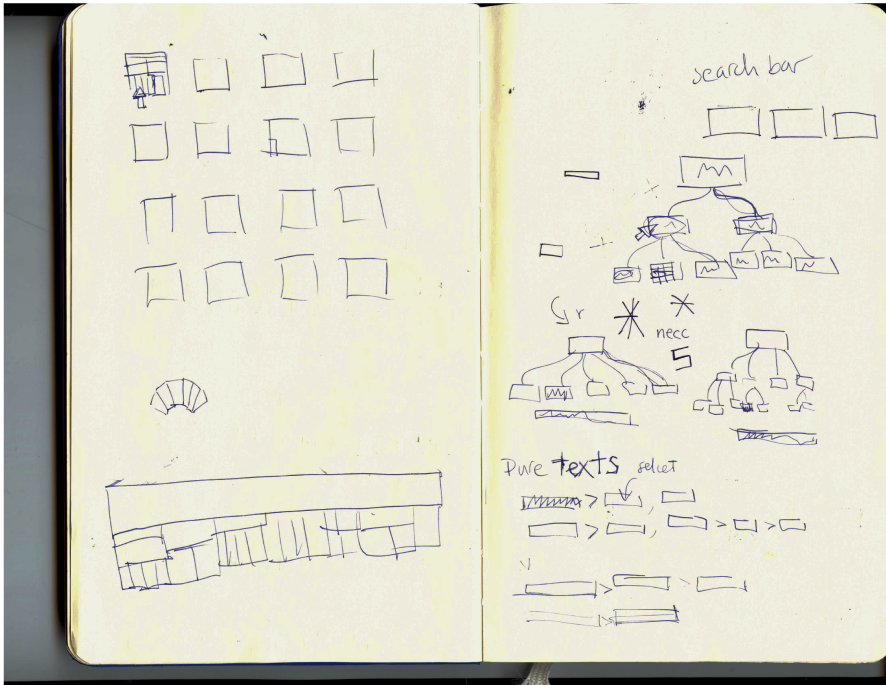 search bar
r
necc
5
Pure texts select
> ,
> , > >
> >
>